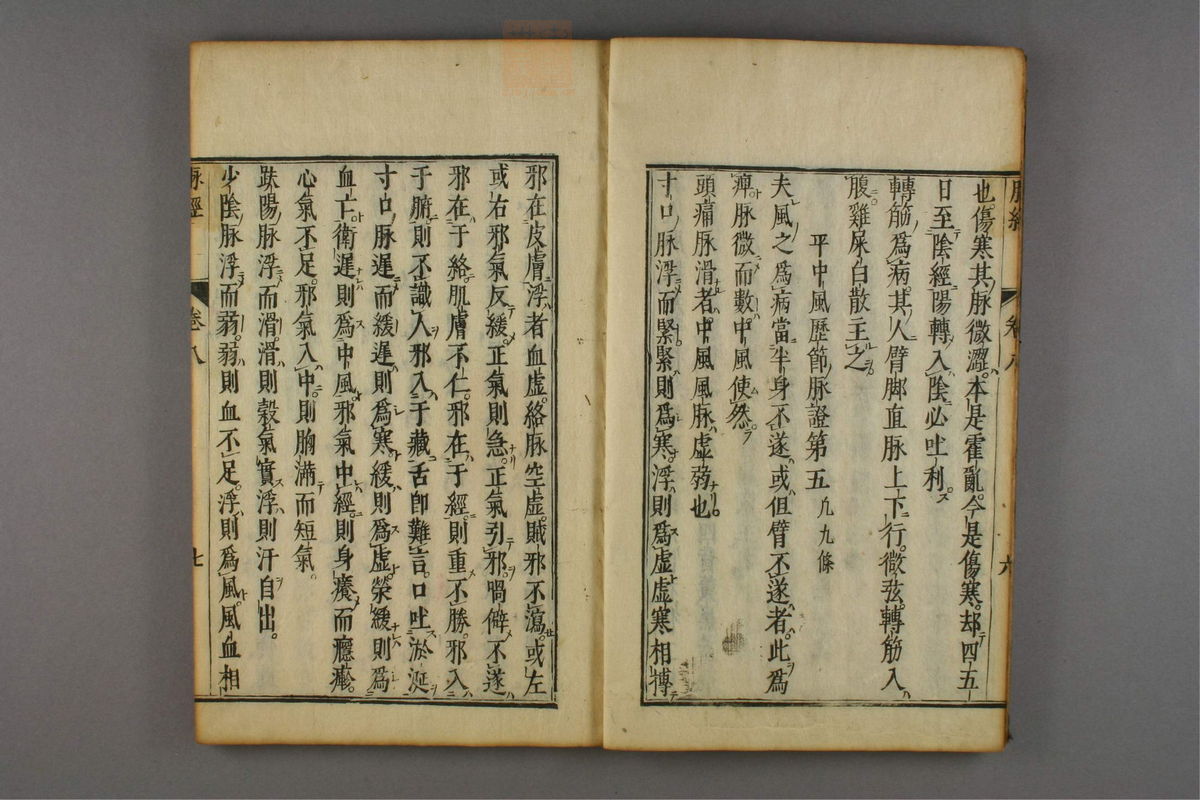 也傷寒其脉微澀本是霍亂今是傷寒却四五
日至陰經陽轉入陰必吐利
轉筋爲病其人臂脚直脉上下行微弦轉筋入
腹雞屎白散主之
平中風歷節脉證第五 凡九條
夫風之爲病當半身不遂或但臂不遂者此爲
痺脉微而數中風使然
頭痛脉滑者中風風脉虛弱也
寸口脉浮而緊緊則爲寒浮則爲虛虛寒相摶
邪在皮膚浮者血虛絡脉空虛賊邪不瀉或左
或右邪氣反緩正氣則急正氣引邪喎僻不遂
邪在于絡肌膚不仁邪在于經則重不勝邪入
于腑則不識人邪入于藏舌卽難言口吐淤涎
寸口脉遲而緩遲則爲寒緩則爲虛榮緩則爲
血亡衛遲則爲中風邪氣中經則身癢而癮瘮
心氣不足邪氣入中則胸滿而短氣
趺陽脉浮而滑滑則穀氣實浮則汗自出
少陰脉浮而弱弱則血不足浮則爲風風血相
脉經 卷八 七